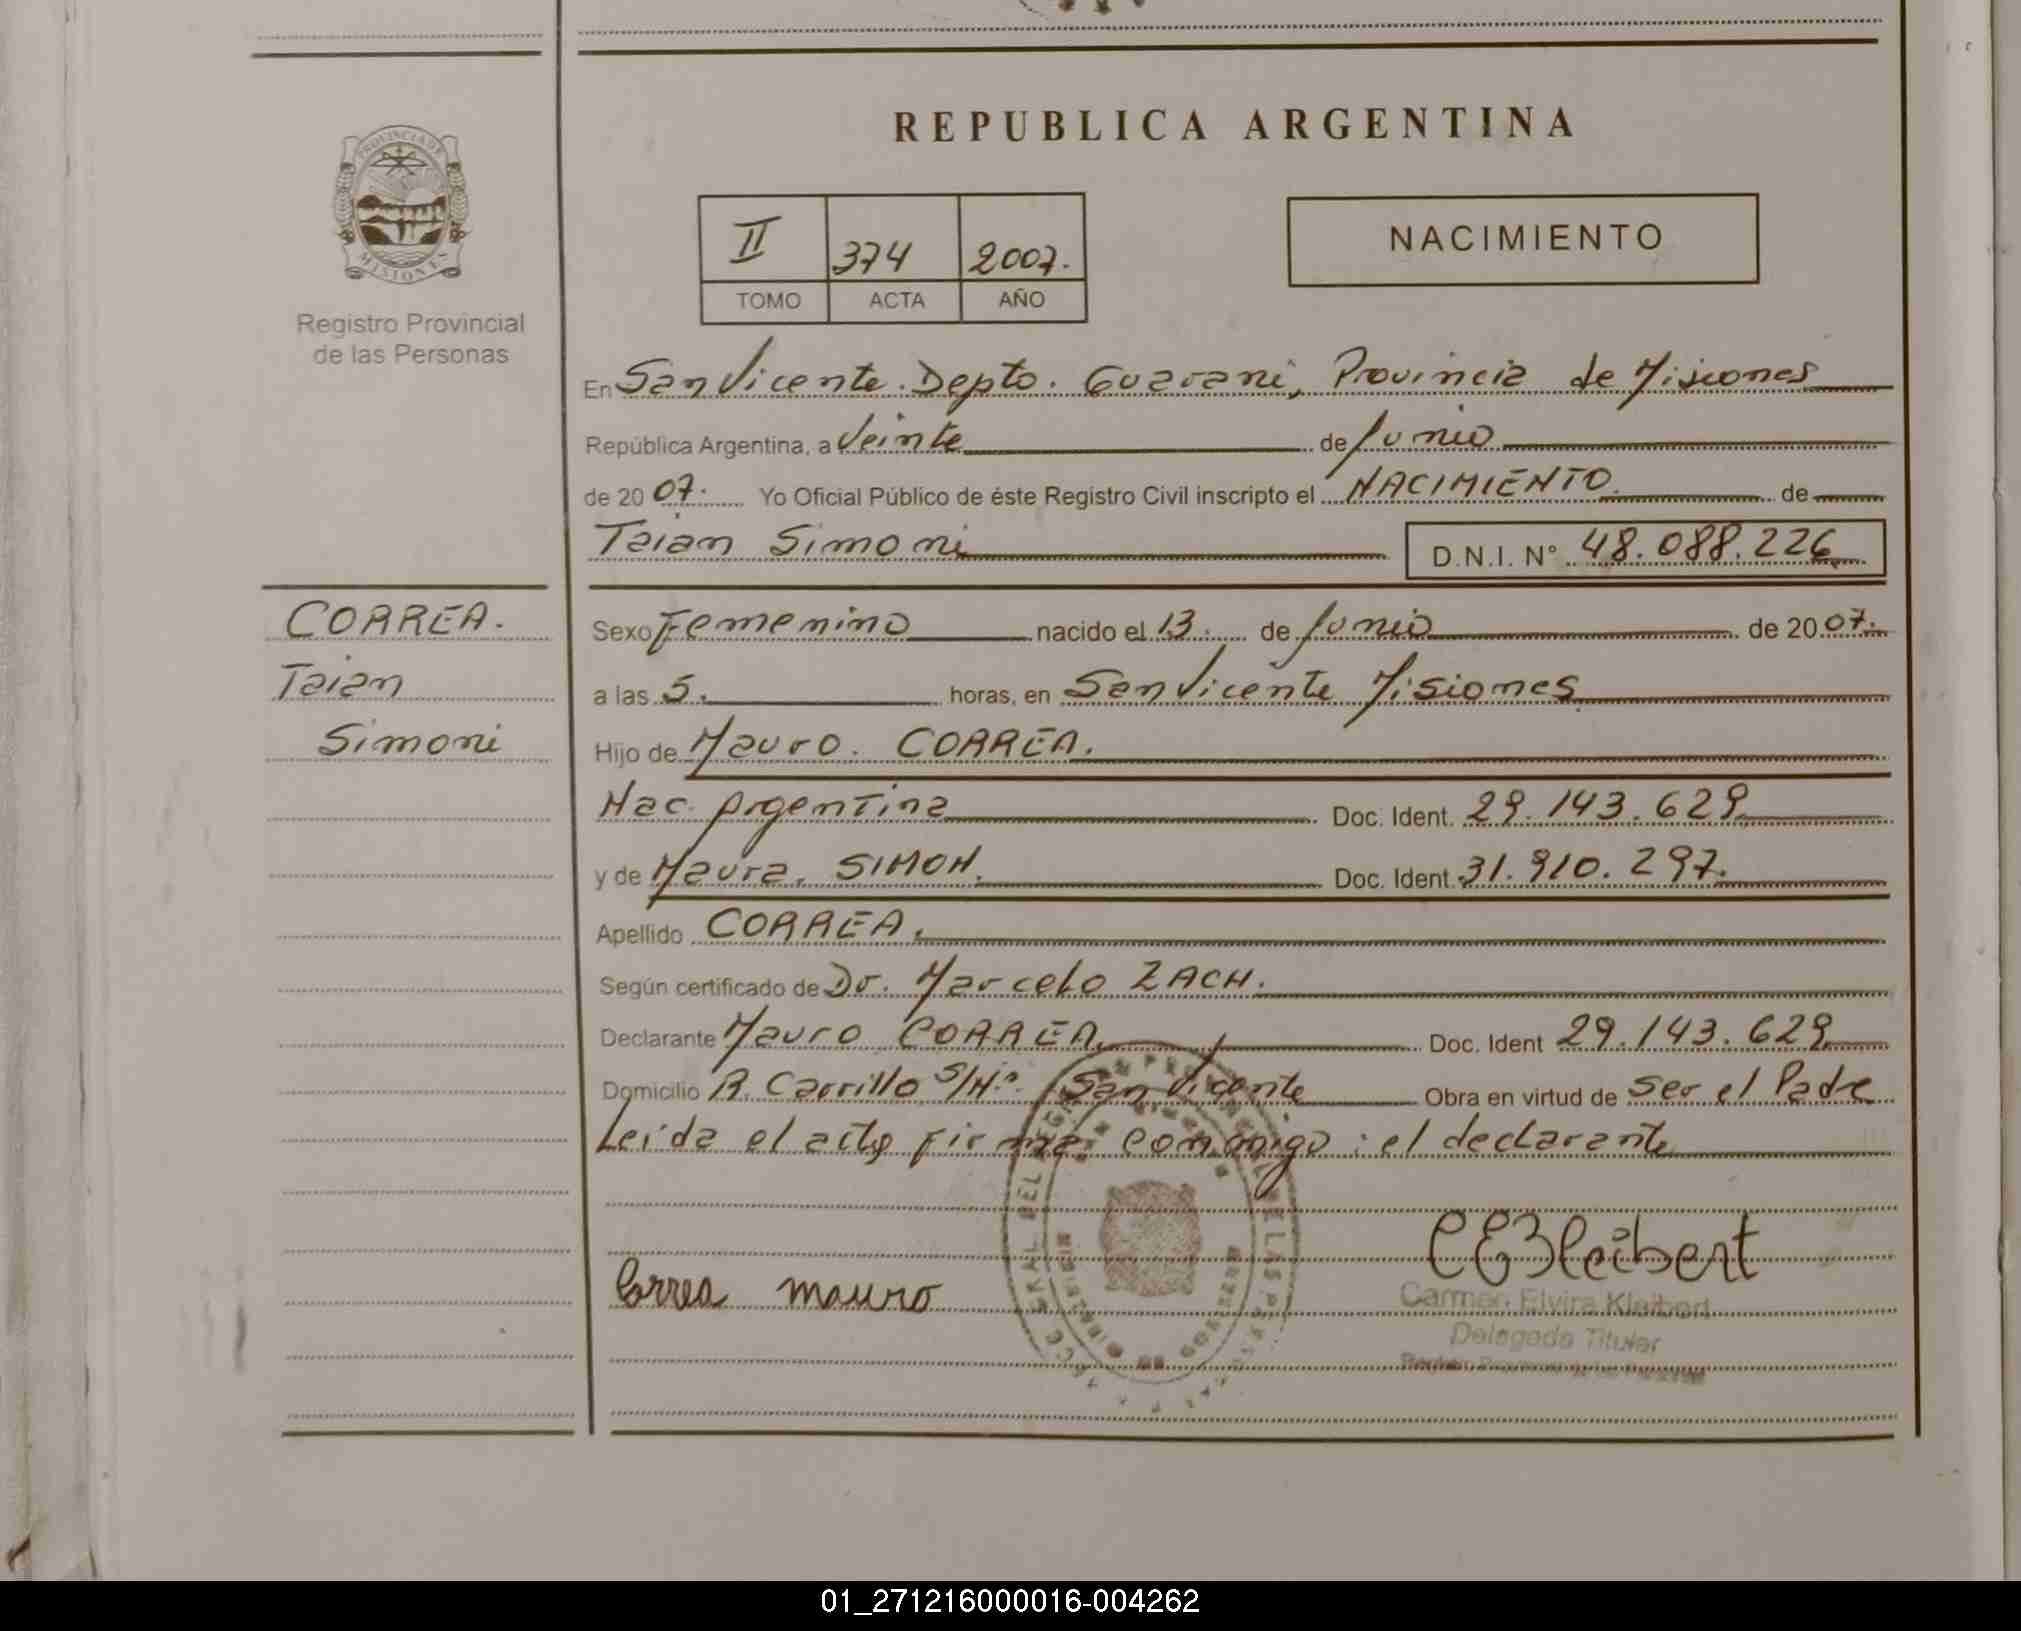 REPUBLICA ARGENTINA
PROVINCIA DE
MISIONES
Registro Provincial
de las Personas
II 374 2007.
TOMO ACTA AÑO
NACIMIENTO
En San Vicente. Depto. Guarani, Provincia de Misiones
República Argentina, a Veinte de Junio
de 2007. Yo Oficial Público de éste Registro Civil inscripto el NACIMIENTO de
Taian Simoni D.N.I. Nº 48.088.226
CORREA.
Taian
Simoni
Sexo Femenino nacido el 13. de Junio de 2007.
a las 5. horas, en San Vicente Misiones
Hijo de Mauro. CORREA.
Nac. Argentina Doc. Ident. 29.143.629
y de Maura. SIMON. Doc. Ident. 31.910.297.
Apellido CORREA.
Según certificado de Dr. Marcelo ZACH.
Declarante Mauro CORREA Doc. Ident 29.143.629
Domicilio R. Carrillo S/Nº. San Vicente Obra en virtud de Ser el Padre
Leída el acta firma conmigo: el declarante
Correa mauro
CEKleibert
Carmen Elvira Kleibert
Delegada Titular
01_271216000016-004262